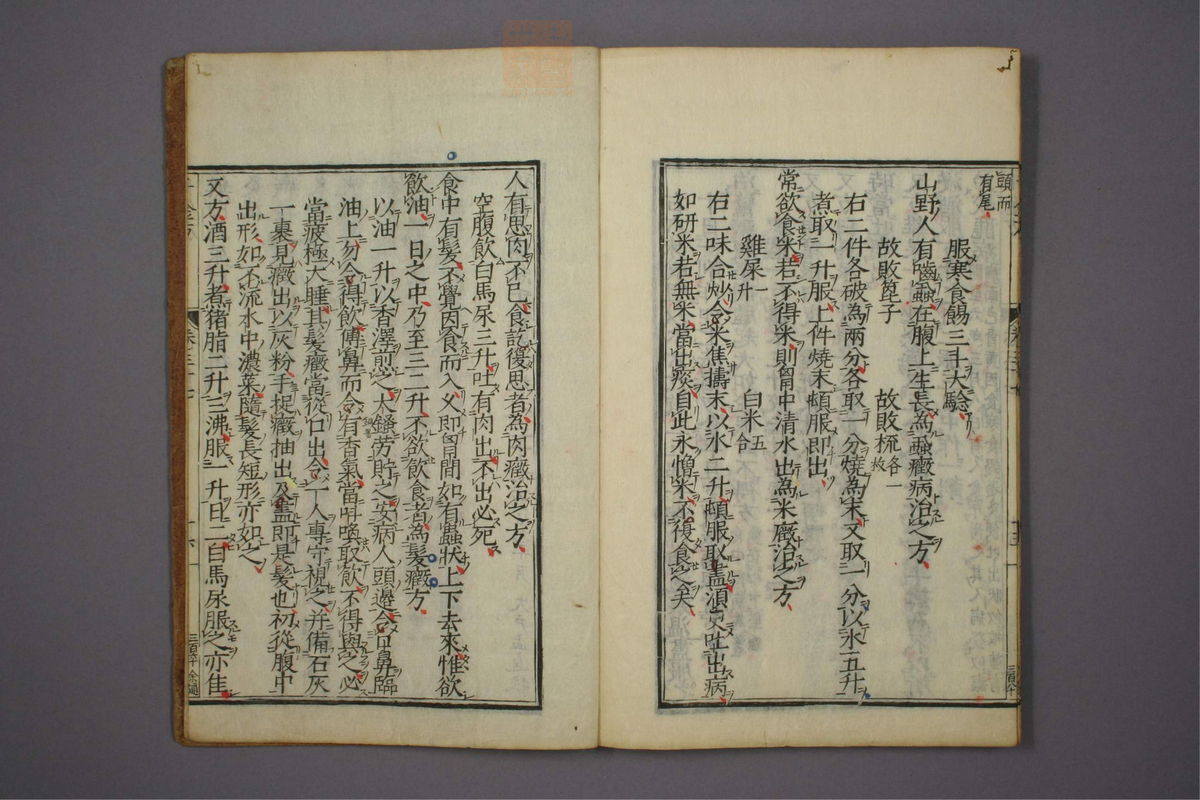 頭而
有尾
服寒食餳三斗大驗
山野人有嚙蝨在腹上生長為蝨癥病治之方
故敗篦子 故敗梳各一枚
右二件各破為兩分各取一分燒為末又取一分以水五升
煮取一升服上件燒末頓服即出
常欲食米若不得米則胷中清水出為米癥治之方
雞屎一升 白米五合
右二味合炒令米焦擣末以水二升頓服取盡須臾吐出病
如研米若無米當出痰自此永憎米不復食之矣
人有思肉不已食訖復思者為肉癥治之方
空腹飲白馬尿三升吐有肉出不出必死
食中有髮不覺因食而入又即胷間如有蟲狀上下去來惟欲
飲油一日之中乃至三二升不欲飲食者為髮癥方
以油一升以香澤煎之大鏟勞貯之安病人頭邊令口鼻臨
油上勿令得飲傅鼻而令有香氣當叫喚取飲不得與之必
當疲極大睡其髮癥當從口出令一人專守視之并備石灰
一裹見癥出以灰粉手捉癥抽出及盡即是髮也初從腹中
出形如不流水中濃菜隨髮長短形亦如之
又方酒三升煮猪脂二升三沸服一升日二白馬尿服之亦佳